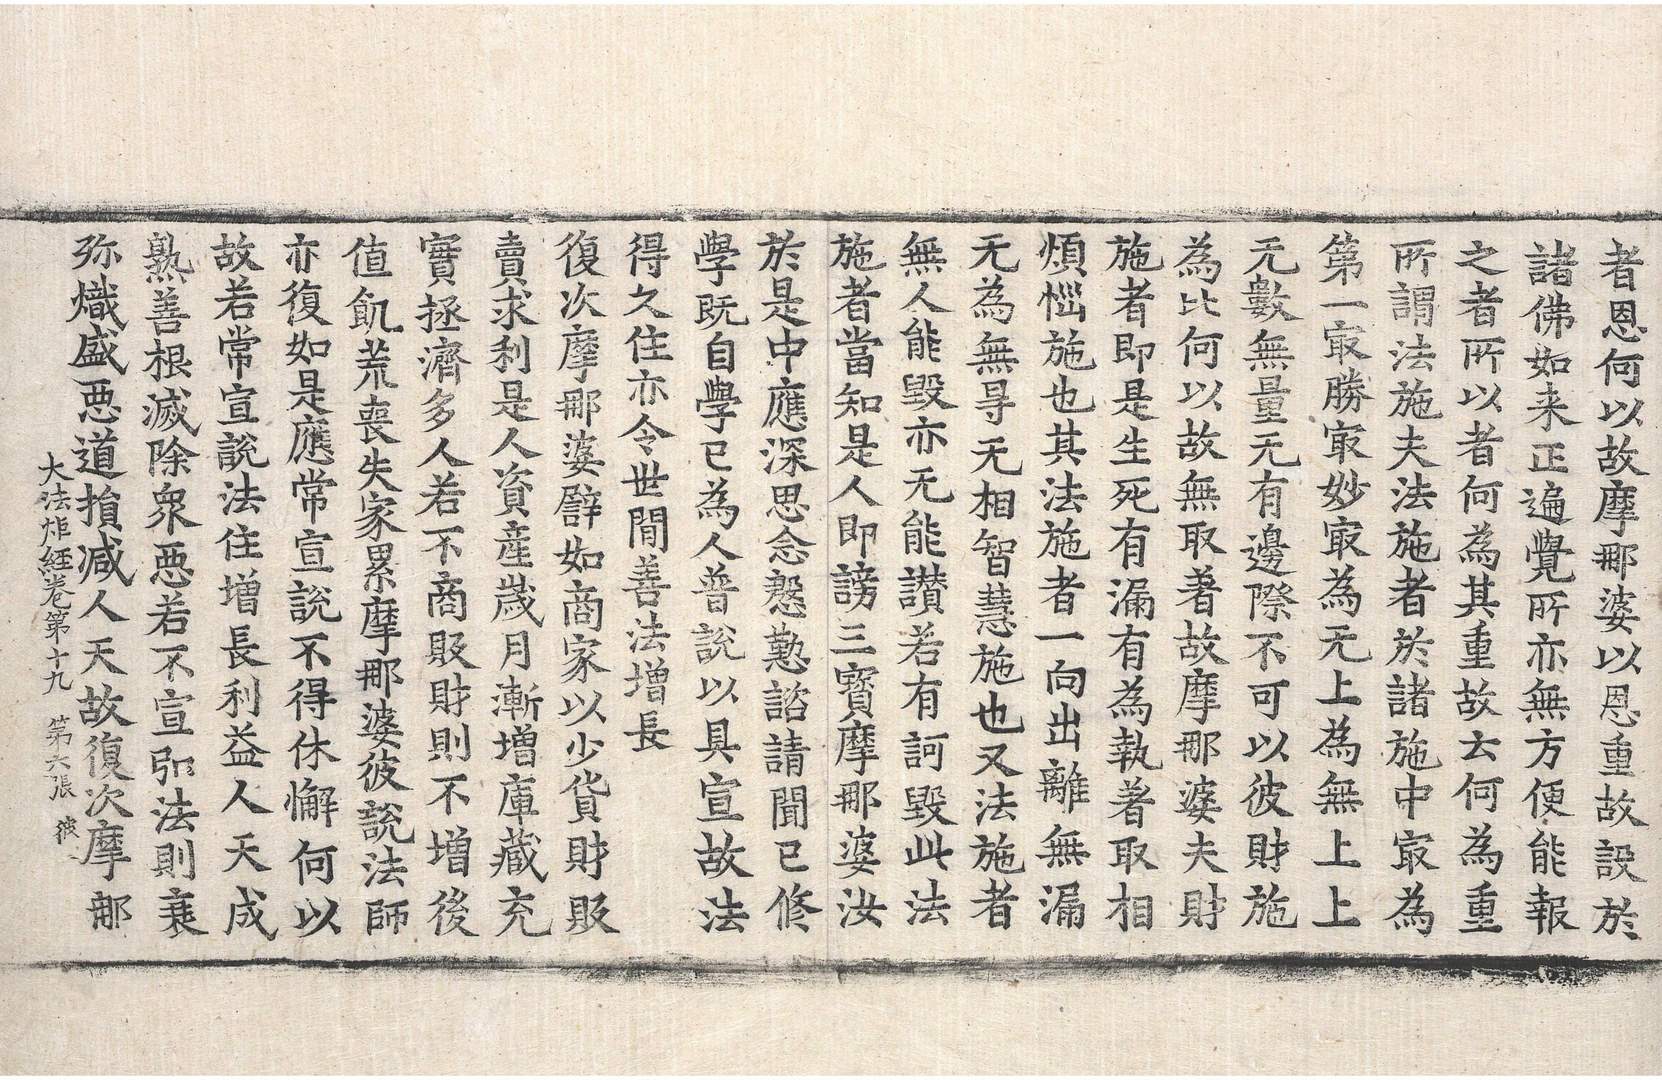 者恩何以故摩那婆以恩重故設於
諸佛如来正遍覺所亦無方便能報
之者所以者何為其重故去何為重
所謂法施夫法施者於諸施中㝡為
第一㝡勝㝡妙㝡為无上為無上上
无數無量无有邊際不可以彼財施
為比何以故無取著故摩那婆夫財
施者即是生死有漏有為執著取相
煩惱施也其法施者一向出離無漏
无為無㝵无相智慧施也又法施者
無人能毀亦无能讃若有訶毀此法
施者當知是人即謗三寶摩那婆汝
於是中應深思念慇懃諮請聞已修
學既自學已為人普說以具宣故法
得久住亦令世間善法增長
復次摩那婆譬如商家以少貨財販
賣求利是人資産歲月漸增庫藏充
實拯濟多人若不商販財則不增後
值飢荒喪失家累摩那婆彼說法師
亦復如是應常宣說不得休懈何以
故若常宣說法住增長利益人天成
熟善根滅除衆惡若不宣弘法則衰
弥熾盛惡道損减人天故復次摩那
大法炬経卷第十九 第六張 彼